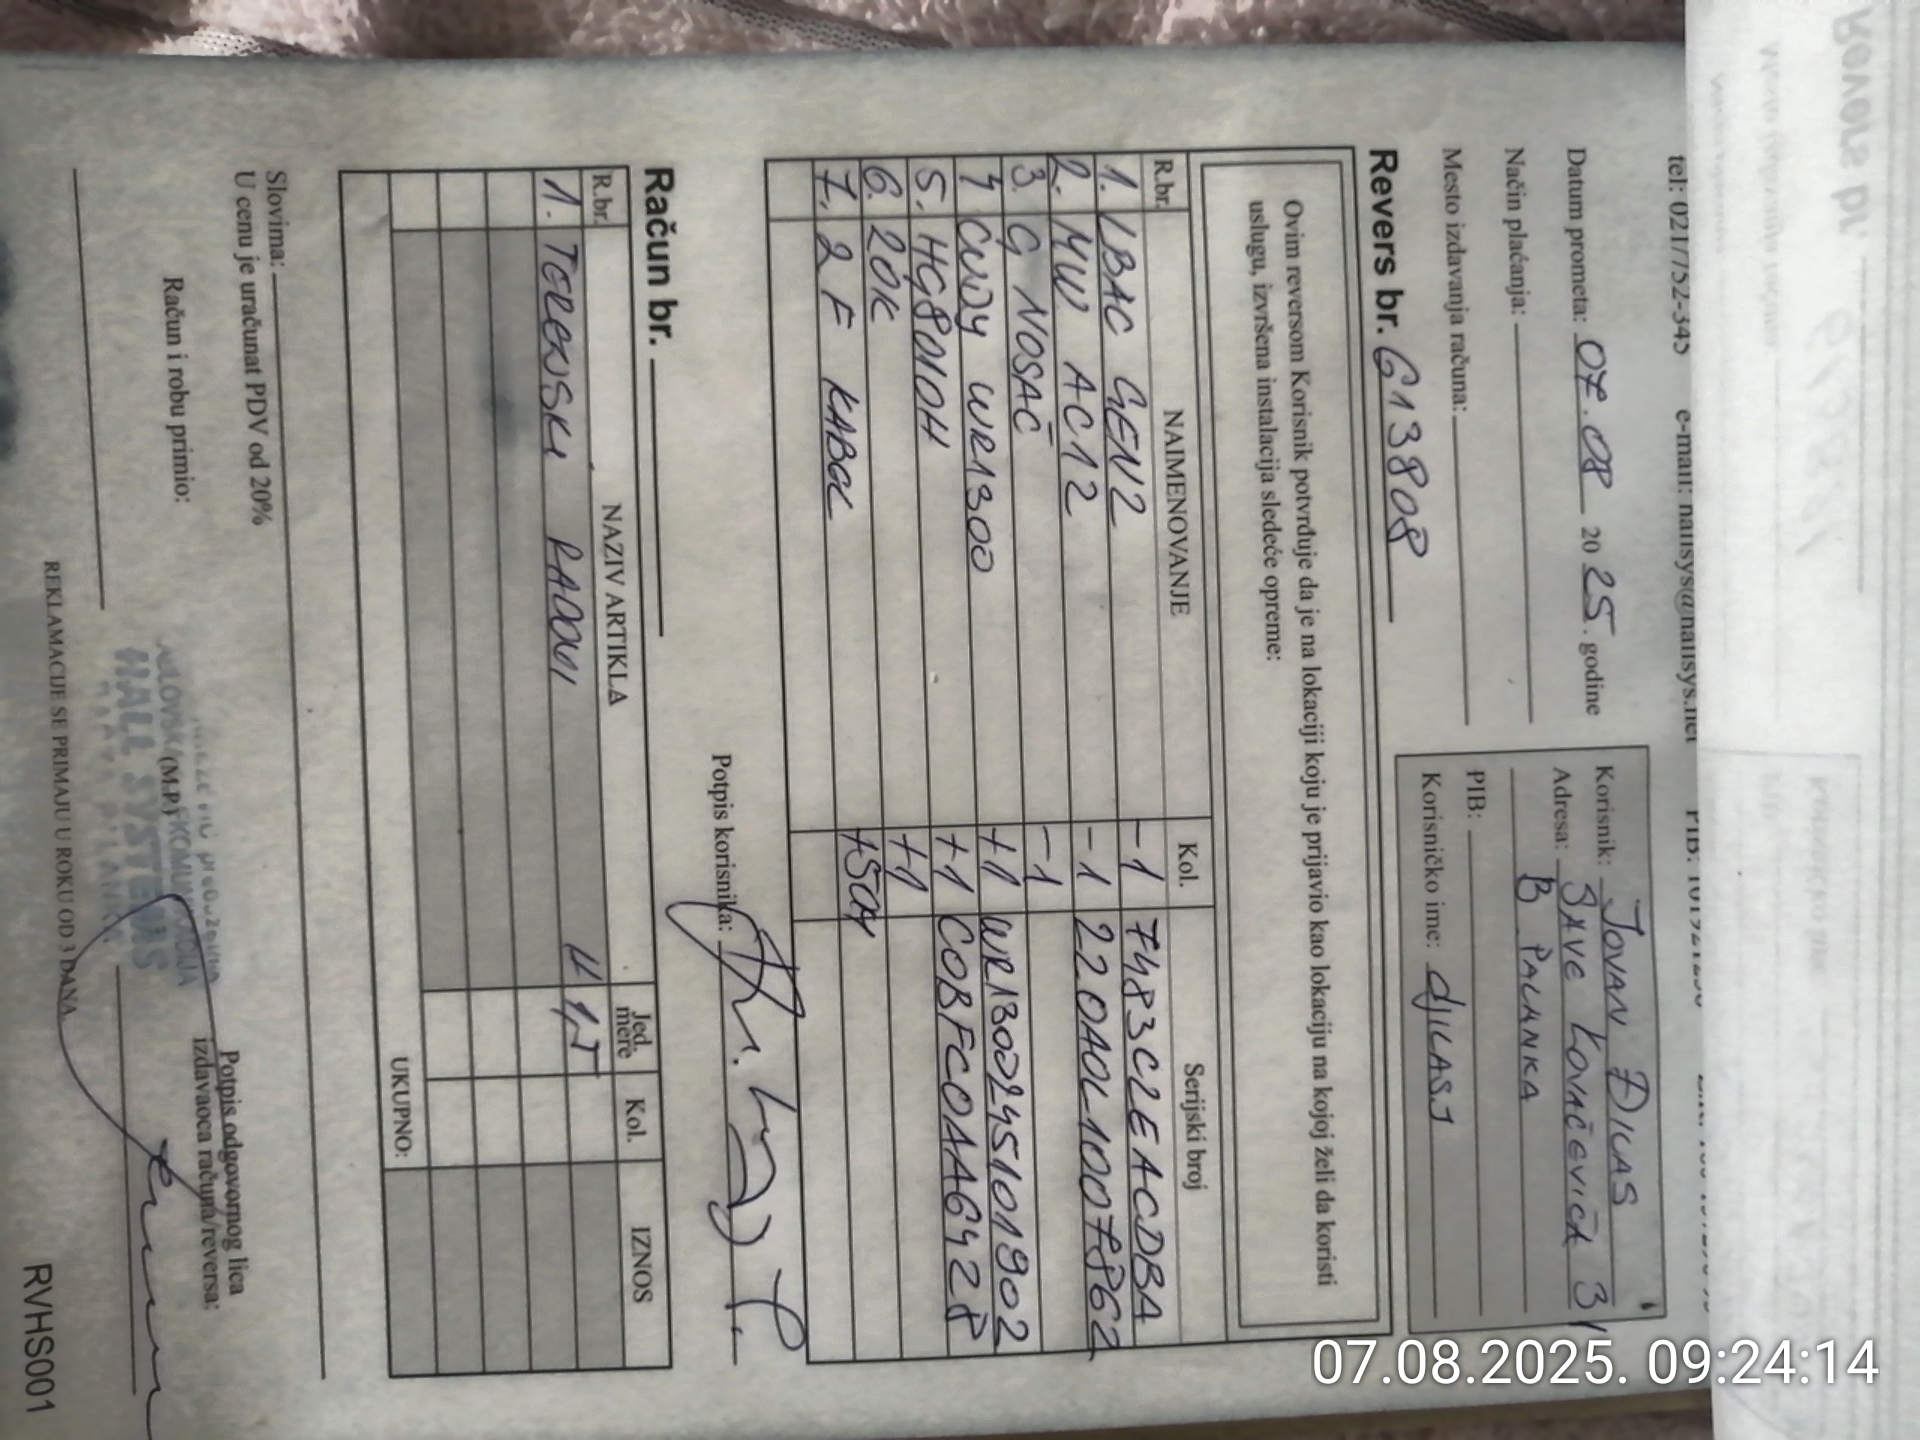 tel: 021/752-345 e-mail: hallsys@hallsys.net
Datum prometa: 07.08 20 25. godine
Način plaćanja:
Mesto izdavanja računa:
Korisnik: JOVAN ĐILAS
Adresa: SAVE KOVAČEVIĆA 31
B PALANKA
PIB:
Korisničko ime: djILAS.J
Revers br. G13808
Ovim reversom Korisnik potvrđuje da je na lokaciji koju je prijavio kao lokaciju na kojoj želi da koristi
uslugu, izvršena instalacija sledeće opreme:
R.br. NAIMENOVANJE Kol. Serijski broj
1. LBAC GEN2 -1 7483C2EACDBA
2. MW AC12 -1 220A0L1007862
3. G NOSAČ -1
4 CUDY WR1300 +1 WR1300245101902
5. HG8010H +1 C0BFC0AA6428
6. ZOK +1
7. 2 F KABGL +50M
Potpis korisnika:
Račun br.
R.br. NAZIV ARTIKLA Jed. mere Kol. IZNOS
1. TERENSKI RADOVI
UKUPNO:
Slovima:
U cenu je uračunat PDV od 20%
Račun i robu primio:
(M.P.)
HALL SYSTEMS
Potpis odgovornog lica
izdavaoca računa/reversa:
REKLAMACIJE SE PRIMAJU U ROKU OD 3 DANA.
RVHS001
07.08.2025. 09:24:14